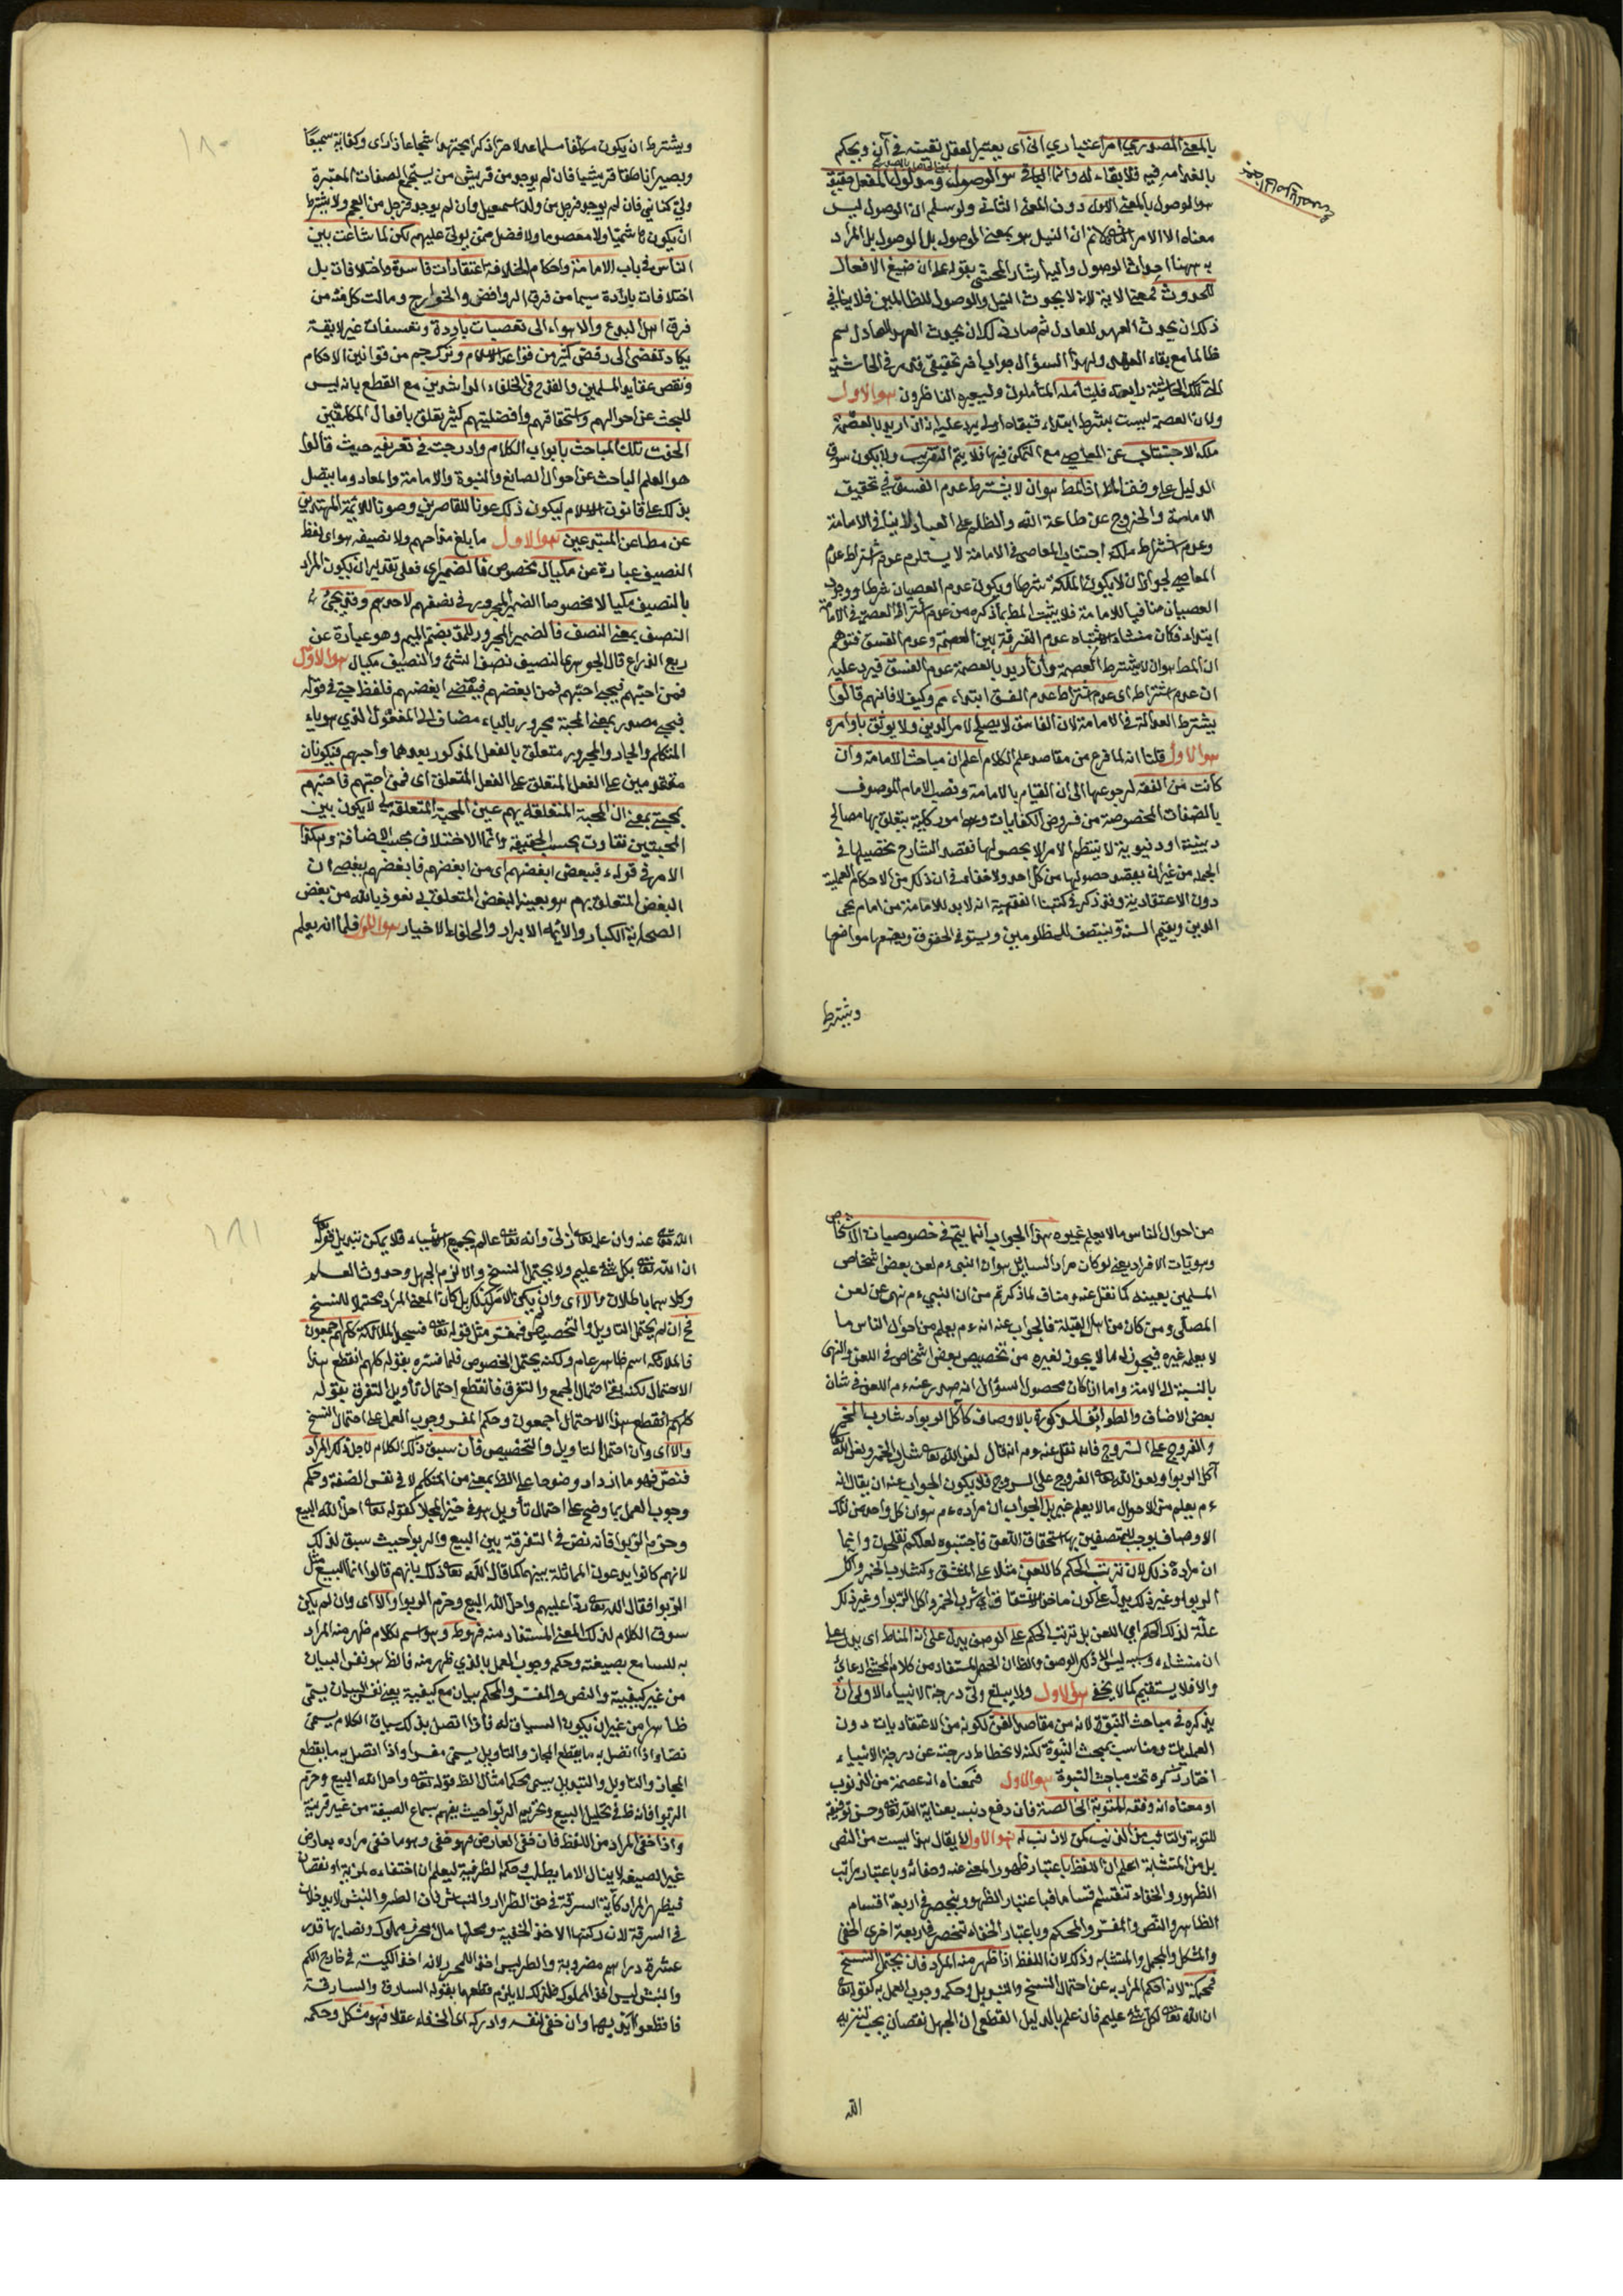 بالمعنى المصدري امر اعتباري انى اى يعتبر العقل نفسه في آن ويحكم
بانعدامه فيه فلا بقاء له وانما الباقي هو الوصول ومدلول الفعل حقيقة
هو الوصول بالمعنى الاول دون المعنى الثانى ولو سلم ان الوصول ليس
معناه الا الامر فلانم ان النيل هو بمعنى الوصول بل الوصول بل المراد
به ههنا احداث الوصول واليه اشار المحشى بقوله على ان صيغ الافعال
للحدوث فمعنى الاية لانه لا يحدث النيل والوصول للظالمين فلا ينافي
ذلك ان يحدث العهد للعادل ثم صادف لكان يحدث العهد للعادل ثم
ظالما مع بقاء العهد ولهذا السؤال جواب اخر تحقيقى في الحاشية
فليتأمله المتأملون وليعبره الناظرون هو الاول
ولان العصمة ليست بشرط ابتداء فبقاء اولى يرد عليه انه ان اريد بالعصمة
ملكة الاجتناب عن المعاصى مع التمكن فيها فلا يتم التقريب ولا يكون سوق
الدليل على وفق المط اذ المط هو ان لا يشترط عدم الفسق في تحقيق
الامامة والخروج عن طاعة الله والظلم على العباد لا ينافى الامامة
وعدم اشتراط ملكة اجتناب المعاصى في الامامة لا يستلزم عدم اشتراط عدم
المعاصي لجواز ان لا يكون الملكة شرطا ويكون عدم العصيان شرطا ووجود
العصيان منافيا للامامة فلا يثبت المط بما ذكره من عدم اشتراط العصمة في الامامة
ابتداء فكان منشاء اشتباه عدم التفرقة بين العصمة وعدم الفسق فتوهم
ان المط هو ان لا يشترط العصمة وان اريد بالعصمة عدم الفسق فيرد عليه
ان عدم اشتراط اى عدم اشتراط عدم الفسق ابتداء مم وكيف لا فانهم قالوا
يشترط العدالة في الامامة لان الفاسق لا يصلح لامر الدين ولا يوثق باوامره
هو الاول قلنا انه لما فرغ من مقاصد علم الكلام اعلم ان مباحث الامامة وان
كانت من الفقه لرجوعها الى ان القيام بالامامة ونصب الامام الموصوف
بالصفات المخصوصة من فروض الكفايات وهى امور كلية يتعلق بها مصالح
دينية او دنيوية لا ينتظم الامر الا بحصولها فقصد الشارع تحصيلها في
الجملة من غير ان يقصد حصولها من كل احد ولا خفاء في ان ذلك من الاحكام العملية
دون الاعتقادية وقد ذكر في كتبنا الفقهية انه لا بد للامامة من امام يحي
الدين ويقيم السنة وينتصف للمظلومين ويستوفى الحقوق ويضعها مواضعها
ويشترط
١٨٠
ويشترط ان يكون مكلفا مسلما عدلا حرا ذكرا مجتهدا شجاعا ذا راى وكفاية سميعا
وبصيرا ناطقا قريشيا فان لم يوجد من قريش من يستجمع الصفات المعتبرة
ولى كناني فان لم يوجد فرجل من ولد اسمعيل وان لم يوجد فرجل من العجم ولا يشترط
ان يكون هاشميا ولا معصوما ولا افضل ممن يولى عليهم لكن لما شاعت بين
الناس في باب الامامة واحكام الخلافة اعتقادات فاسدة واختلافات بل
اختلافات باردة سيما من فرق الروافض والخوارج ومالت كل فئة من
فرق اهل البدع والاهواء الى تعصبات باردة وتعسفات غير لايقة
يكاد تفضى الى رفض كثير من قواعد الاسلام وتزجهم من قوانين الاحكام
ونقص عقايد المسلمين والقدح في الخلفاء الراشدين مع القطع بانه ليس
للبحث عن احوالهم واستحقاقهم وافضليتهم كثير تعلق بافعال المكلفين
الحقت تلك المباحث بابواب الكلام وادرجت في تعريفه حيث قالوا
هو العلم الباحث عن احوال الصانع والنبوة والامامة والمعاد وما يتصل
بذلك على قانون الاسلام ليكون ذلك عونا للقاصرين وصونا للائمة المهتدين
عن مطاعن المبتدعين هو الاول ما بلغ مد احدهم ولا نصيفه هو اى لفظ
النصيف عبارة عن مكيال مخصوص فالضمير اى فعلى تقدير ان يكون المراد
بالنصيف مكيالا مخصوصا الضمير المجرور في نصيفهم لاحدهم وقد يجئ
النصيف بمعنى النصف فالضمير المجرور للمد بضم الميم وهو عبارة عن
ربع الذراع قال الجوهرى النصيف نصف الشئ والنصيف مكيال هو الاول
فمن احبهم فبحبى احبهم فمن ابغضهم فببغضى ابغضهم فلفظ حبى في قوله
فبحبى مصدر بمعنى المحبة مجرور بالباء مضاف الى المفعول الذي هو ياء
المتكلم والجار والمجرور متعلق بالفعل المذكور بعدها واحبهم فيكونان
متقدمين على الفعل المتعلق على الفعل المتعلق اى فمن احبهم فاحبهم
بمحبتى بمعنى ان المحبة المتعلقة بهم عين المحبة المتعلقة بى لا يكون بين
المحبتين تفاوت بحسب الحقيقة وانما الاختلاف بحسب الاضافة وهكذا
الامر في قوله فببغضى ابغضهم اى من ابغضهم فابغضهم ببغضى ان
البغض المتعلق بهم هو بعينه البغض المتعلق بى نعوذ بالله من بغض
الصحابة الكبار والائمة الابرار والخلفاء الاخيار هو الاول فلما انه يعلم
من احوال الناس ما لا يعلم غيره هذا الجواب انما يتم في خصوصيات الاشخاص
وهويات الافراد يعنى لو كان مراد السايل هو ان النبى م لعن بعض اشخاص
المسلمين بعينه كما نقل عنه ومناف لما ذكرتم من ان النبي ء م نهى عن لعن
المصلى ومن كان من اهل القبلة فالجواب عنه انه ء م يعلم من احوال الناس ما
لا يعلمه غيره فيجوز له ما لا يجوز لغيره من تخصيص بعض اشخاص في اللعن والنهى
بالنسبة الى الامة واما اذا كان محصول السؤال انه صدر عنه ء م اللعن في شان
بعض الاصناف والطوائف المذكورة بالاوصاف كآكل الربوا وشارب الخمر
والفروج على السروج فانه نقل عنه ء م انه قال لعن الله تعالى شارب الخمر ولعن الله
آكل الربوا ولعن الله تعالى الفروج على السروج فلا يكون الجواب عنه ان يقال انه
ء م يعلم من الاحوال ما لا يعلم غيره بل الجواب ان مراده ء م هو ان كل واحد من تلك
الاوصاف يوجب للمتصفين بها استحقاق اللعن فاجتنبوه لعلكم تفلحون وانما
ان مراده ذلك لان ترتب الحكم كاللعن مثلا على المشتق كشارب الخمر وآكل
الربوا وغير ذلك يدل على كون ماخذ الاشتقاق اى شرب الخمر واكل الربوا وغير ذلك
علة لذلك الحكم اى اللعن بل ترتب الحكم على الوصف يدل على انه المناط اى يدل على
ان منشاءه وسببه ليس الا ذلك الوصف والظ ان الحصر المستفاد من كلام المحشى ادعائى
والا فلا يستقيم كما لا يخفى هو الاول ولا يبلغ ولى درجة الانبياء الاولى ان
يذكره في مباحث النبوة لانه من مقاصد الفن لكونه من الاعتقاديات دون
العمليات ومناسب بمبحث النبوة لكنه لانحطاط درجته عن درجة الانبياء
اختار ذكره تحت مباحث النبوة هو الاول فمعناه انه عصمه من الذنوب
او معناه انه وفقه للتوبة الخالصة فان دفع ذنبه بعناية الله تعالى وحسن توفيقه
للتوبة والتائب من الذنب كمن لا ذنب له هو الاول لا يقال هذا ليست من النص
بل من المتشابة اعلم ان اللفظ باعتبار ظهور المعنى عنه وخفائه وباعتبار مراتب
الظهور والخفاء تنقسم قسما ما فباعتبار الظهور ينحصر في اربعة اقسام
الظاهر والنص والمفسر والمحكم وباعتبار الخفاء تنحصر في اربعة اخرى الخفى
والمشكل والمجمل والمتشابه وذلك لان اللفظ اذا ظهر منه المراد فان لم يحتمل النسخ
فمحكم لانه احكم المراد به عن احتمال النسخ والتبديل وحكمه وجوب العمل به كقوله تعالى
ان الله تعالى بكل شئ عليم فان علم بالدليل القطعى ان الجهل نقصان يجب تنزيه
الله
١٨١
الله تعالى عنه وان علمه تعالى ازلى وانه تعالى عالم بجميع الاشياء فلا يمكن تبديل قوله
ان الله تعالى بكل شئ عليم ولا يحتمل النسخ والا لزم الجهل وحدوث العلم
وكلاهما باطلان والا اى وان لم يكن الامر كذلك بل كان المعنى المراد محتملا للنسخ
فح ان لم يحتمل التاويل والتخصيص فمفسر مثل قوله تعالى فسجد الملائكة كلهم اجمعون
فالملائكة اسم ظاهر عام ولكنه يحتمل الخصوص فلما فسره بقوله كلهم انقطع هذا
الاحتمال لكنه بقى احتمال الجمع والتفرق فانقطع احتمال تأويل التفرق بقوله
كلهم انقطع هذا الاحتمال اجمعون وحكم المفسر وجوب العمل على احتمال النسخ
والا اى وان احتمل التاويل والتخصيص فان سبق ذلك الكلام لاجل ذلك المراد
فنص فهو ما ازداد وضوحا على الظ بمعنى من المتكلم لا في نفس الصيغة وحكم
وجوب العمل بما وضح على احتمال تأويل هو في حيز المجاز كقوله تعالى احل الله البيع
وحرم الربوا فانه نص في التفرقة بين البيع والربوا حيث سبق لذلك
لانهم كانوا يدعون المماثلة بينهما كما قال الله تعالى ذلك بانهم قالوا انما البيع مثل
الربوا فقال الله تعالى ردا عليهم واحل الله البيع وحرم الربوا والا اى وان لم يكن
سوق الكلام لذلك المعنى المستفاد منه فهو ظ وهو اسم لكلام ظهر منه المراد
به للسامع بصيغته وحكمه وجوب العمل بالذي ظهر منه فالظ هو نفس البيان
من غير كيفية والنص والمفسر والمحكم بيان مع كيفية يعنى نفس البيان يسمى
ظاهرا من غير ان يكون السياق له فاذا اتصل بذلك سياق الكلام يسمى
نصا واذا اتصل به ما يقطع المجاز والتاويل يسمى مفسرا واذا اتصل به ما يقطع
المجاز والتاويل والتبديل يسمى محكما مثال الظ قوله تعالى واحل الله البيع وحرم
الربوا فانه ظ في تحليل البيع وتحريم الربوا حيث يفهم بسماع الصيغة من غير قرينة
واذا خفى المراد من اللفظ فان خفى العارض فهو خفى وهو ما خفى مراده بعارض
غير الصيغة لا ينال الا بالطلب وحكمه النظر فيه ليعلم ان اختفاءه لمزية او نقصان
فيظهر المراد كآية السرقة في حق الطرار والنباش فان الطر والنبش لا يدخلان
في السرقة لان ركنها الاخذ الخفية ومحلها مال محرز مملوك ونصابها قدر
عشرة دراهم مضروبة والطر ليس اخذ المحرز لانه اخذ الكيسة في خارج الكم
والنبش ليس اخذ المملوك فلذلك لا يلزم قطعهما بقوله السارق والسارقة
فاقطعوا ايديهما وان خفى لنفسه وادركه اى الخفاء عقلا فهو مشكل وحكمه